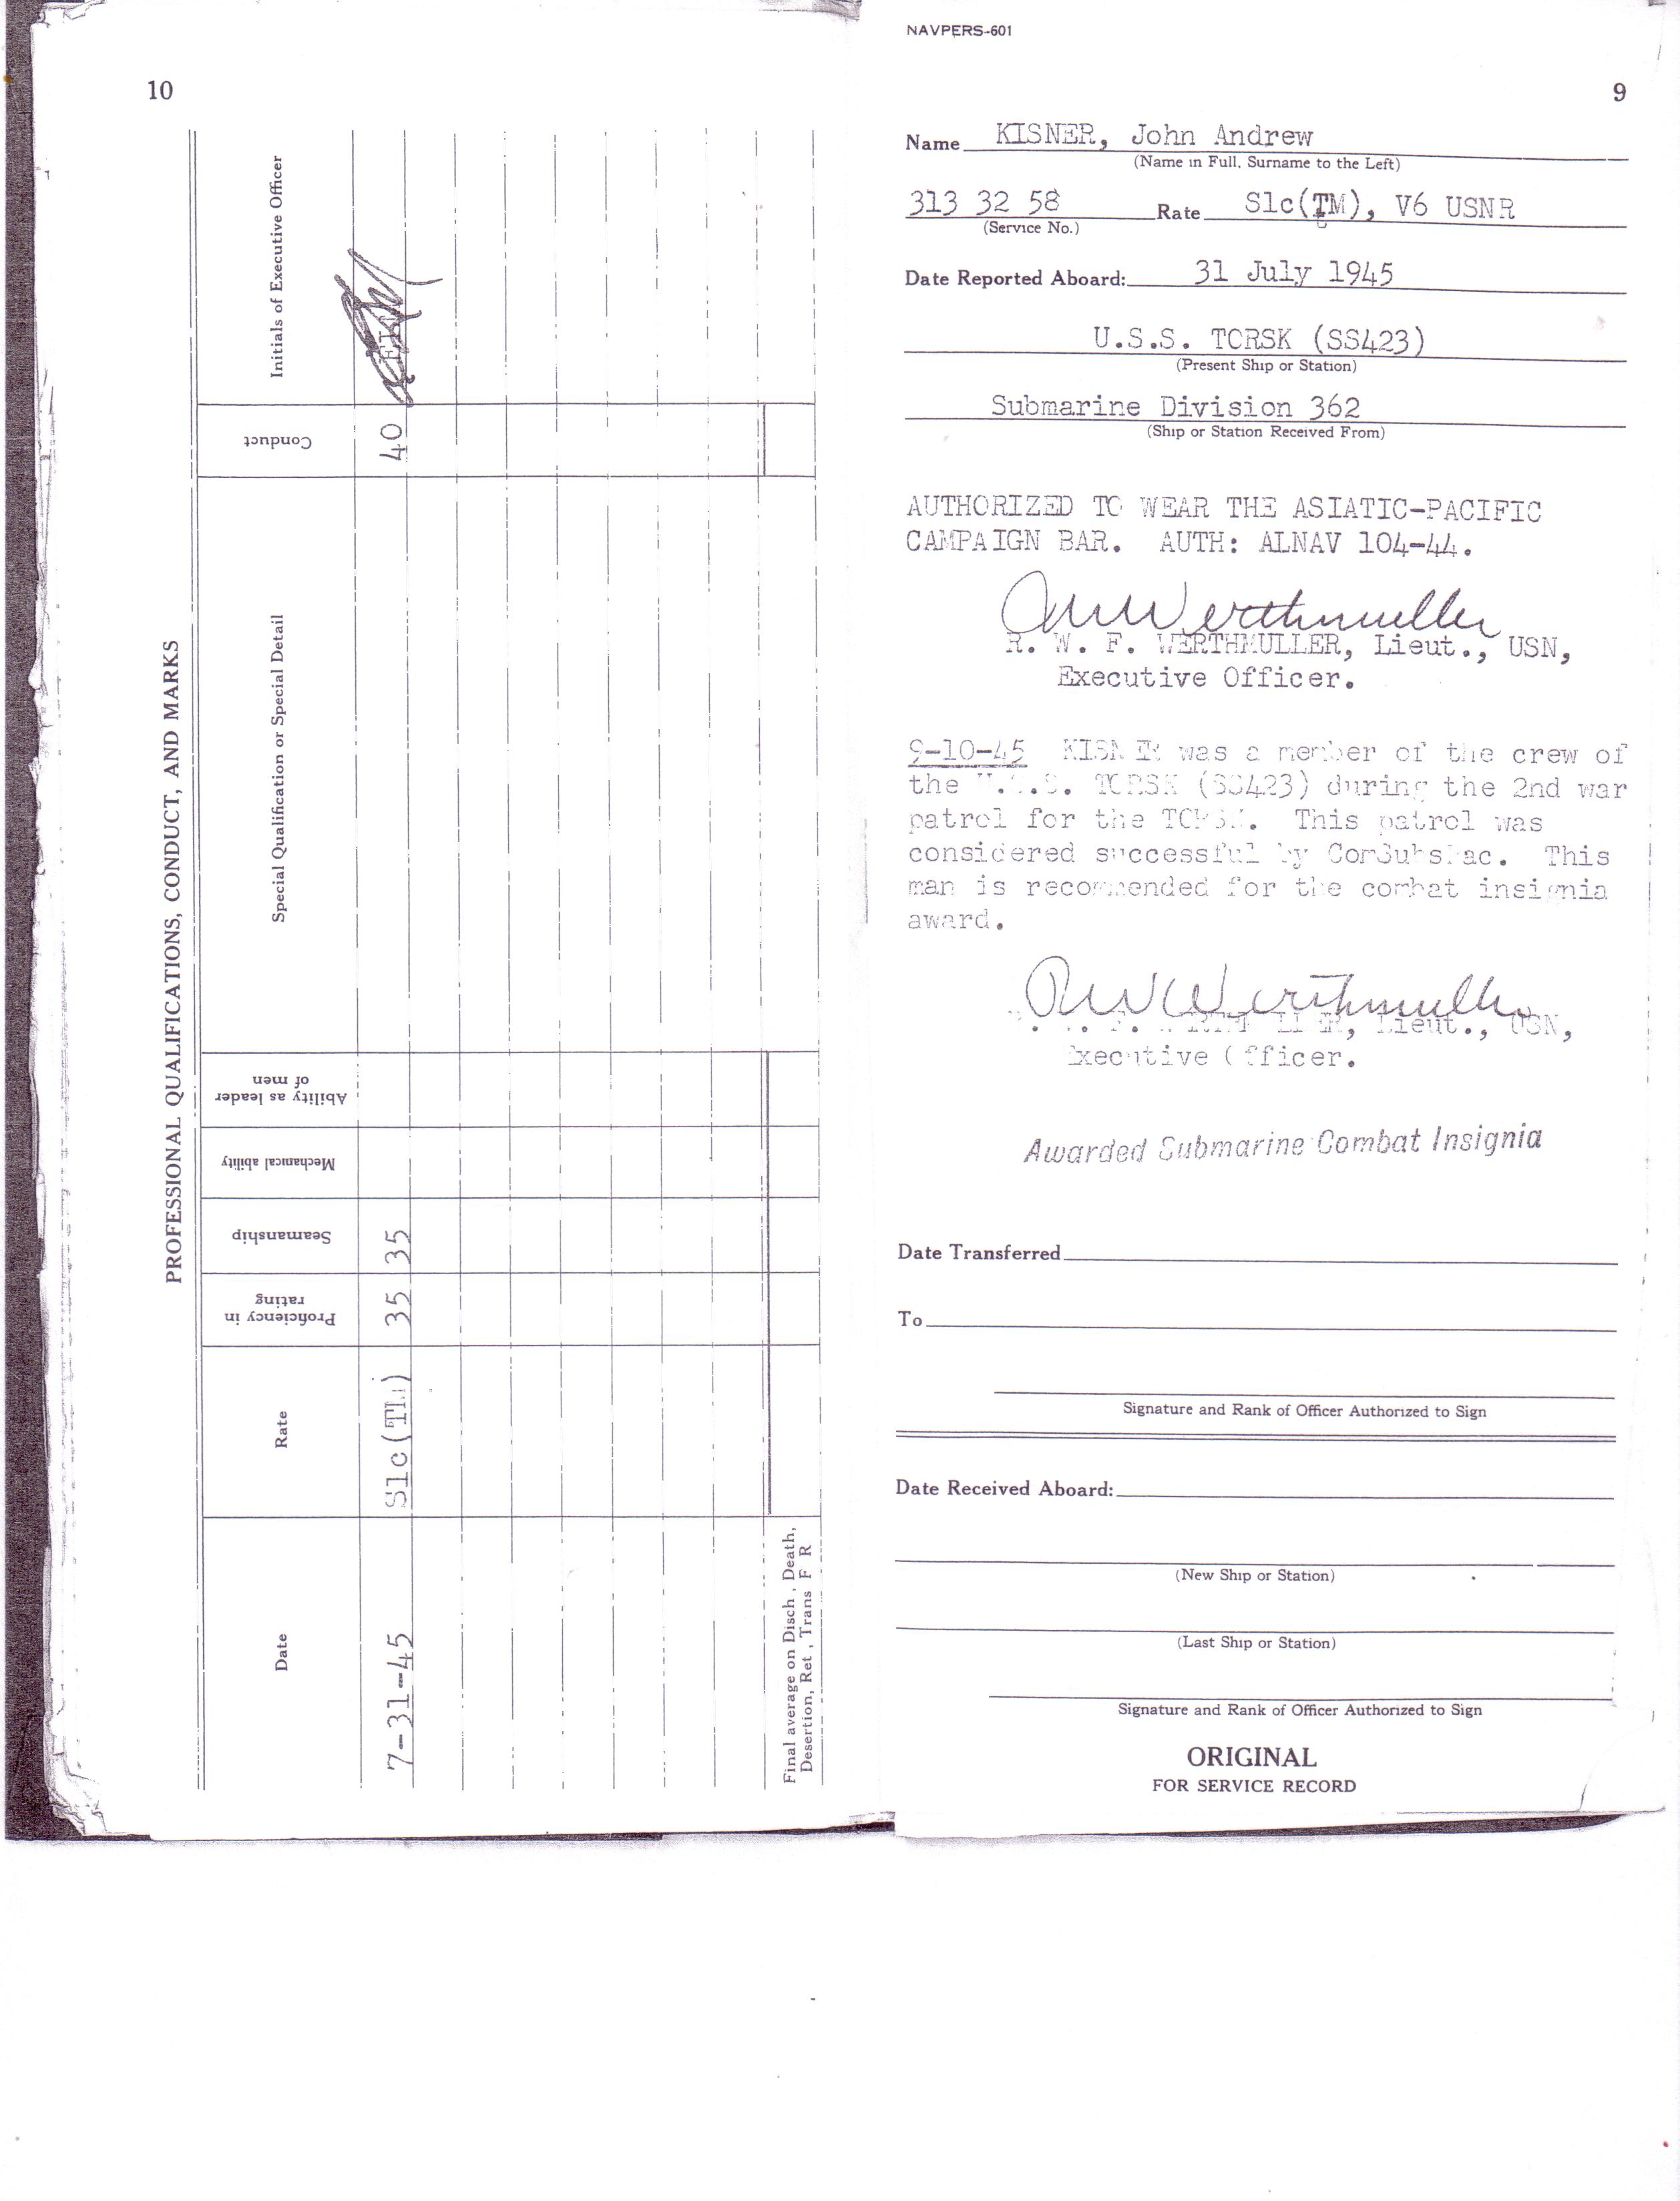 10
PROFESSIONAL QUALIFICATIONS, CONDUCT, AND MARKS
Date
Rate
Proficiency in
rating
Seamanship
Mechanical ability
Ability as leader
of men
Special Qualification or Special Detail
Conduct
Initials of Executive Officer
7-31-45 S1c(TM) 35 35 40
Final average on Disch , Death,
Desertion, Ret , Trans F R
NAVPERS-601
9
Name KISNER, John Andrew
(Name in Full, Surname to the Left)
313 32 58 Rate S1c(TM), V6 USNR
(Service No.)
Date Reported Aboard: 31 July 1945
U.S.S. TORSK (SS423)
(Present Ship or Station)
Submarine Division 362
(Ship or Station Received From)
AUTHORIZED TO WEAR THE ASIATIC-PACIFIC
CAMPAIGN BAR. AUTH: ALNAV 104-44.
R. W. F. WERTHMULLER, Lieut., USN,
Executive Officer.
9-10-45 KISNER was a member of the crew of
the U.S.S. TORSK (SS423) during the 2nd war
patrol for the TORSK. This patrol was
considered successful by ComSubsPac. This
man is recommended for the combat insignia
award.
Lieut., USN,
Executive Officer.
Awarded Submarine Combat Insignia
Date Transferred
To
Signature and Rank of Officer Authorized to Sign
Date Received Aboard:
(New Ship or Station)
(Last Ship or Station)
Signature and Rank of Officer Authorized to Sign
ORIGINAL
FOR SERVICE RECORD